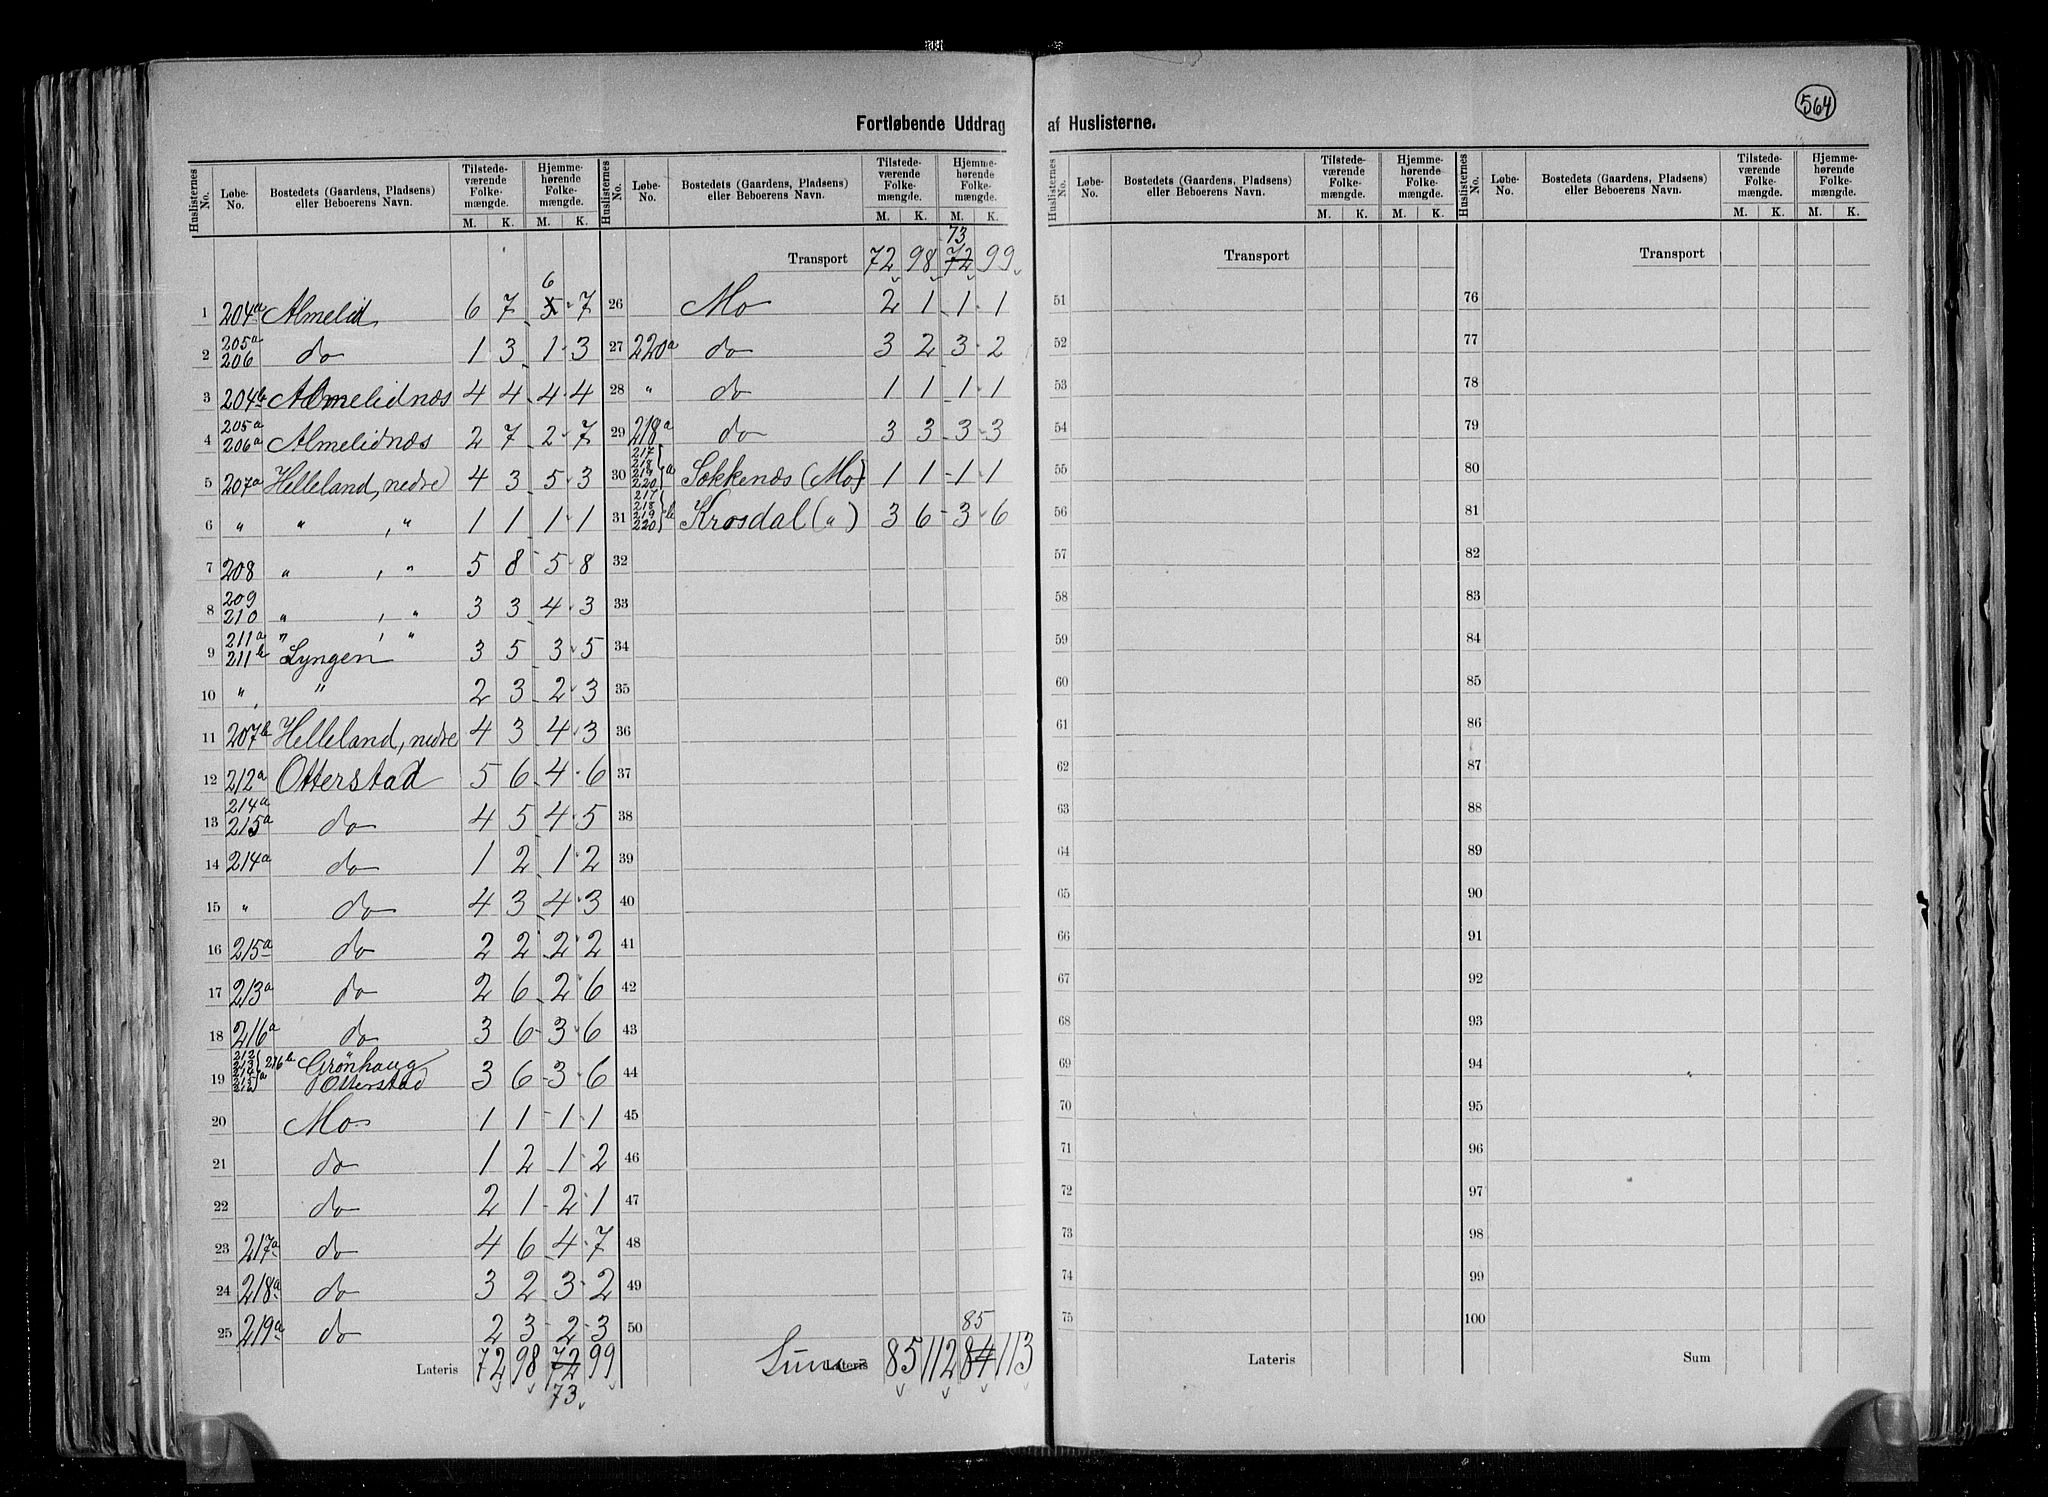 564
Fortløbende Uddrag af Huslisterne.
Huslisternes No. | Løbe-No. | Bostedets (Gaardens, Pladsens) eller Beboerens Navn. | Tilstede-værende Folke-mængde. M. K. | Hjemme-hørende Folke-mængde. M. K.
1 204a Almelid 6 7 5 6 7
2 205a 206 do 1 3 1 3
3 204b Almelidnæs 4 4 4 4
4 205a 206a Almelidnæs 2 7 2 7
5 207a Helleland, nedre 4 3 5 3
6 " " , " 1 1 1 1
7 208 " , " 5 8 5 8
8 209 210 " , " 3 3 4 3
9 211a 211b " , " Lyngen 3 5 3 5
10 " " 2 3 2 3
11 207b Helleland, nedre 4 3 4 3
12 212a Otterstad 5 6 4 6
13 214a 215a do 4 5 4 5
14 214a do 1 2 1 2
15 " do 4 3 4 3
16 215a do 2 2 2 2
17 213a do 2 6 2 6
18 216a do 3 6 3 6
19 216b Grönhaug Otterstad 3 6 3 6
20 Mo 1 1 1 1
21 do 1 2 1 2
22 do 2 1 2 1
23 217a do 4 6 4 7
24 218a do 3 2 3 2
25 219a do 2 3 2 3
Lateris 72 98 72 99
73
Huslisternes No. | Løbe-No. | Bostedets (Gaardens, Pladsens) eller Beboerens Navn. | Tilstede-værende Folke-mængde. M. K. | Hjemme-hørende Folke-mængde. M. K.
73
Transport 72 98 72 99
26 Mo 2 1 1 1
27 220a do 3 2 3 2
28 " do 1 1 1 1
29 218a do 3 3 3 3
30 217 218 219 220 a Sokkenæs (Mo) 1 1 1 1
31 217 218 219 220 b Krosdal (") 3 6 3 6
32
33
34
35
36
37
38
39
40
41
42
43
44
45
46
47
48
49
50
85
Lateris Suma 85 112 84 113
Huslisternes No. | Løbe-No. | Bostedets (Gaardens, Pladsens) eller Beboerens Navn. | Tilstede-værende Folke-mængde. M. K. | Hjemme-hørende Folke-mængde. M. K.
Transport
51
52
53
54
55
56
57
58
59
60
61
62
63
64
65
66
67
68
69
70
71
72
73
74
75
Lateris
Huslisternes No. | Løbe-No. | Bostedets (Gaardens, Pladsens) eller Beboerens Navn. | Tilstede-værende Folke-mængde. M. K. | Hjemme-hørende Folke-mængde. M. K.
Transport
76
77
78
79
80
81
82
83
84
85
86
87
88
89
90
91
92
93
94
95
96
97
98
99
100
Sum